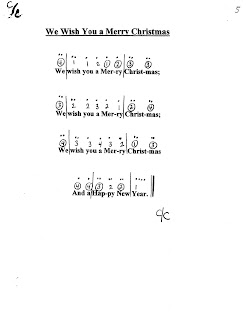 C/C
5
We Wish You a Merry Christmas
④ | 1 1 2 1 ② | ③ ③
We wish you a Mer-ry Christ-mas;
③ | 2 2 3 2 1 | ② ④
We wish you a Mer-ry Christ-mas;
④ | 3 3 4 3 2 | ① ③
We wish you a Mer-ry Christ-mas
④ ④ | ③ 2 ② | 1
And a Hap-py New Year.
C/C